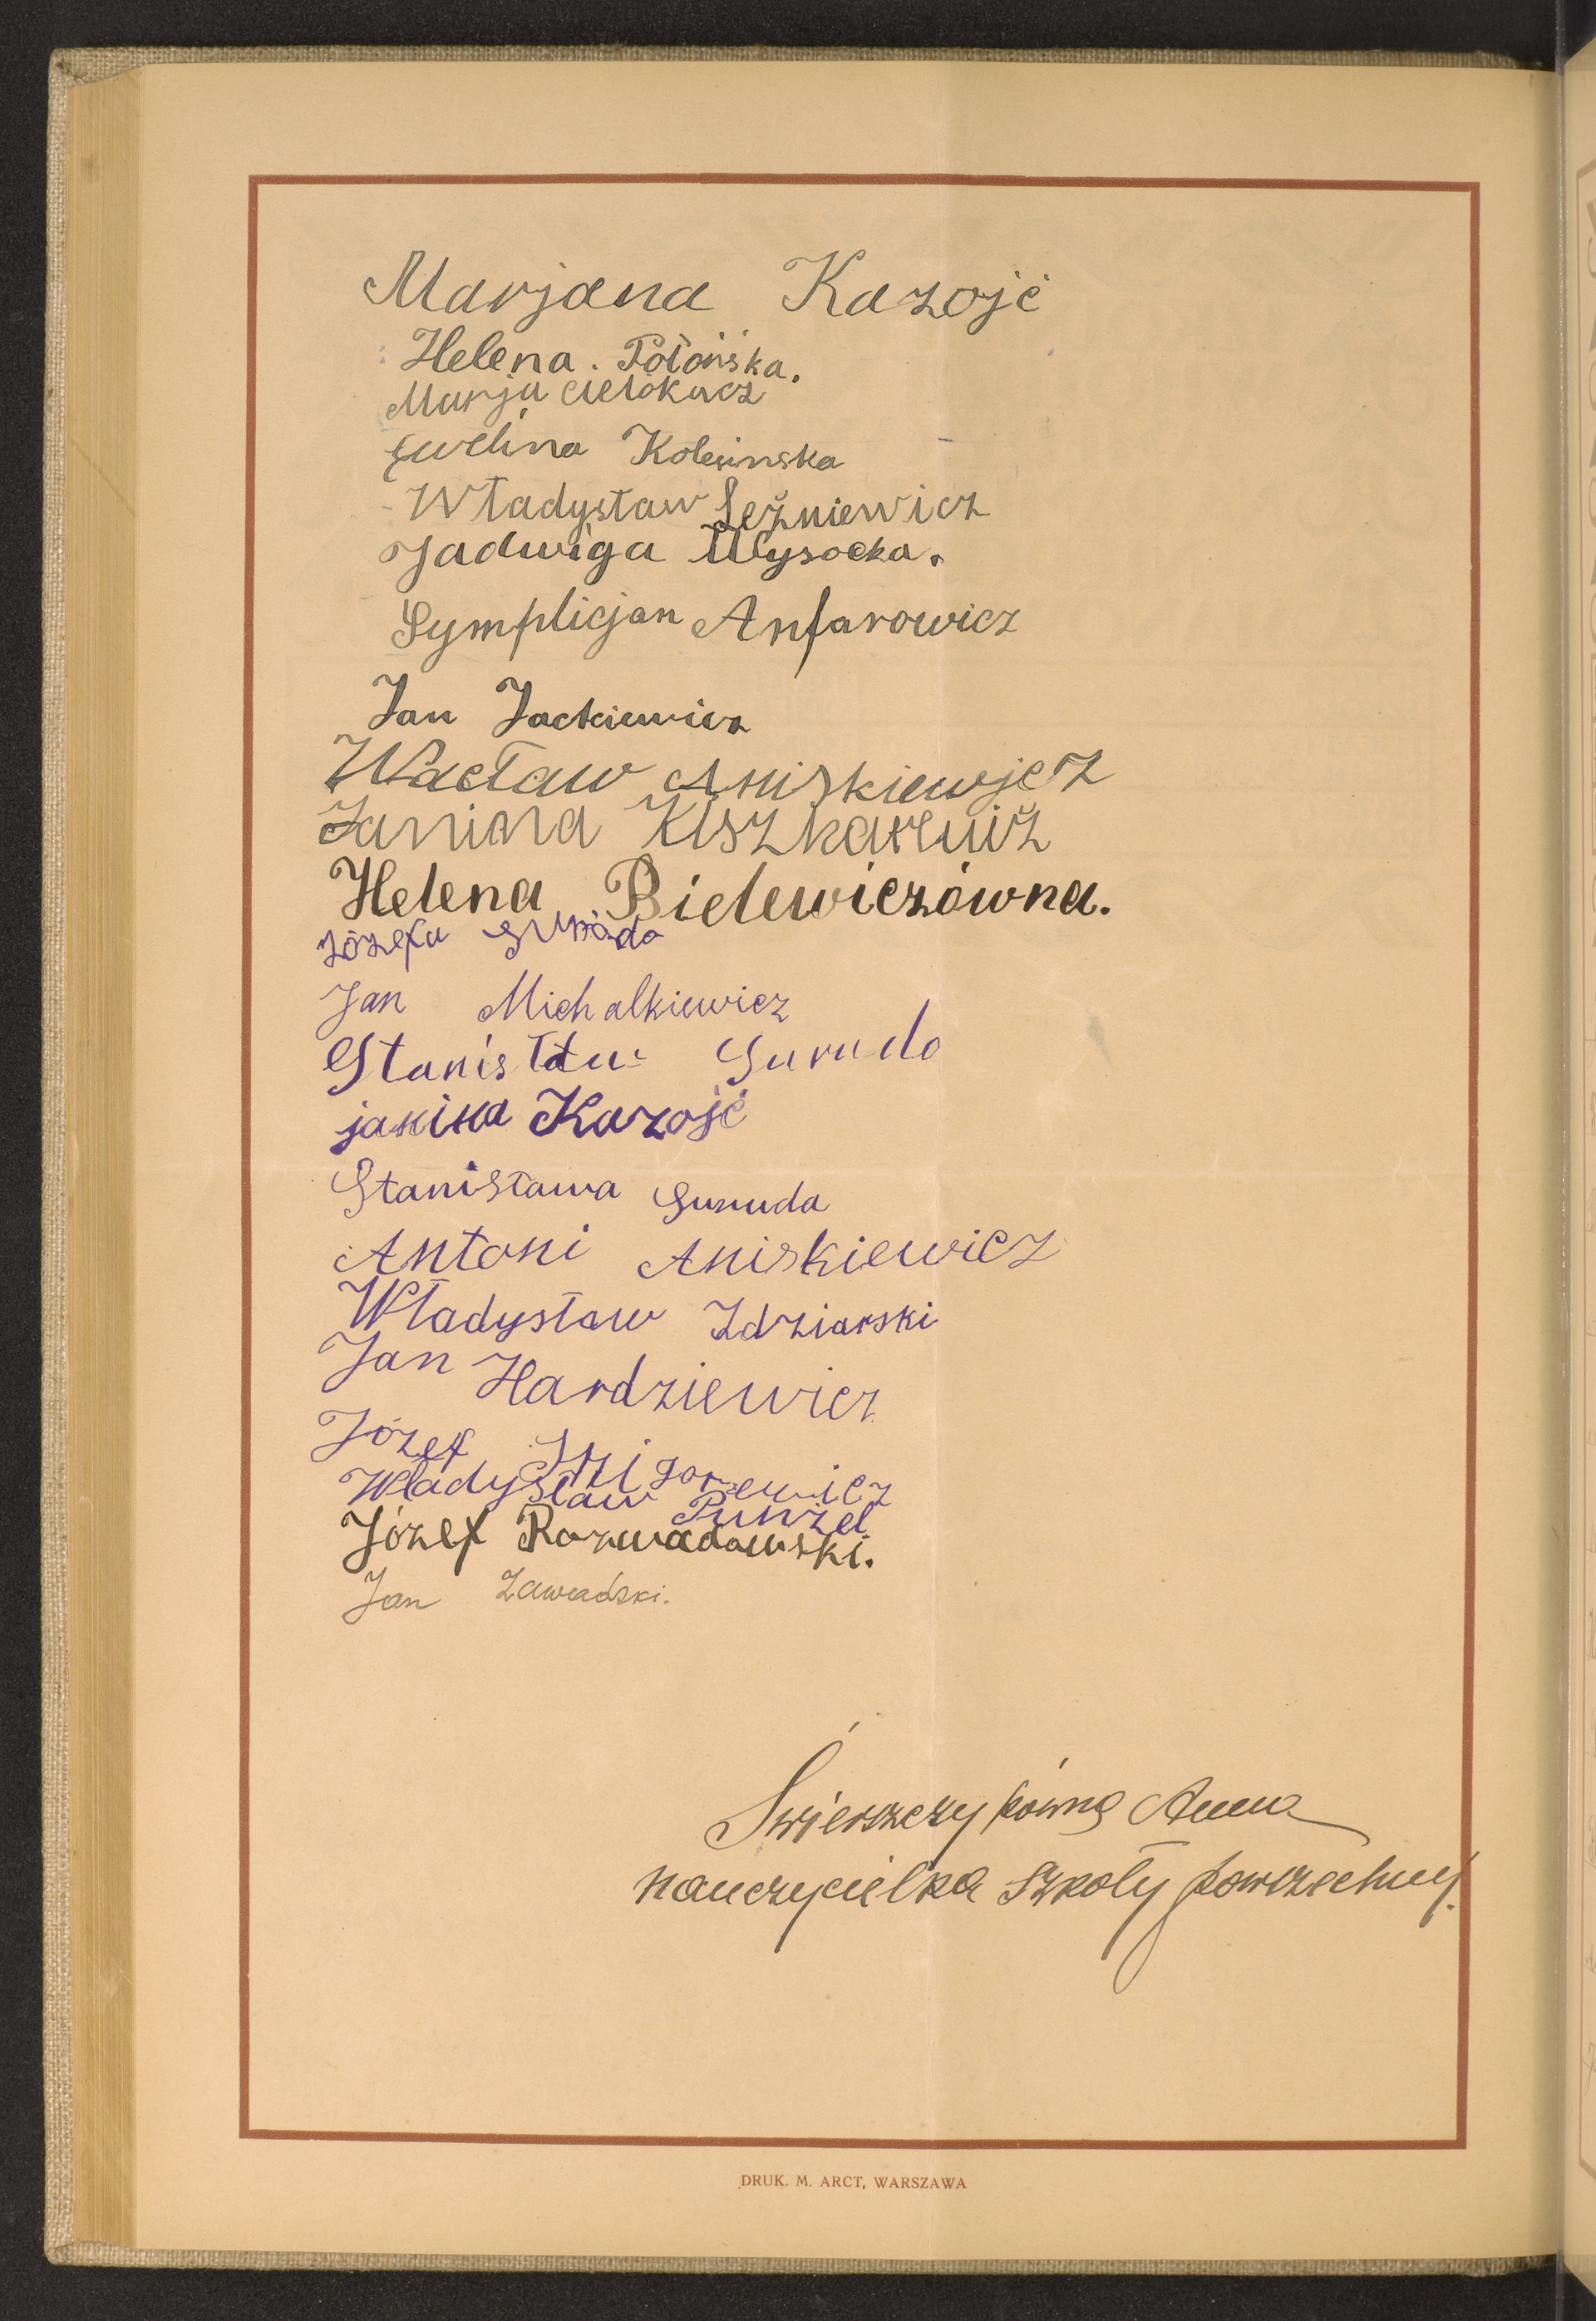 Marjana Kazojć
Helena. Połońska.
Marja
Ewelina Kolesinska
Władysław Leźniewicz
Jadwiga Wysocka.
Symplicjan Anfarowicz
Jan Jackiewicz
Wacław Aniskiewjcz
Janina
Helena Bielewiczówna.
Józefa
Jan Michalkiewicz
Stanisław Suruda
janina Kazojć
Stanisława Suruda
Antoni Aniskiewicz
Władysław Zdziarski
Jan Hardziewicz
Józef
Władysław Punzel
Józef Rozwadowski.
Jan Zawadzki.
Świerszczykówna Anna
nauczycielka szkoły powszechnej.
DRUK. M. ARCT, WARSZAWA